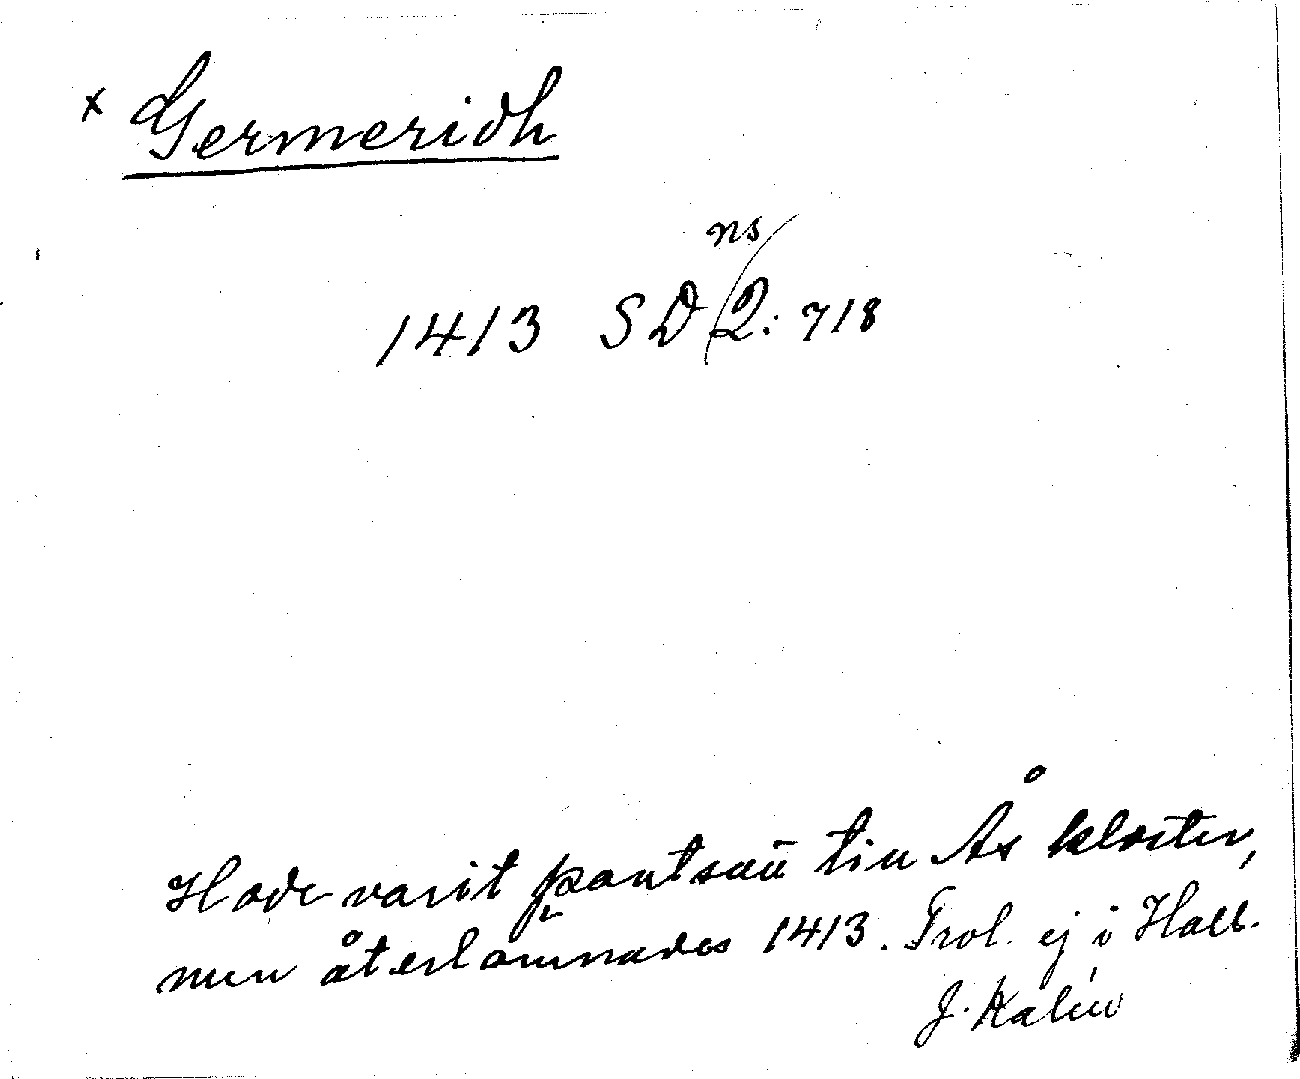 x Germeridh
ns
1413 SD 2: 718
Hade varit pantsatt till Ås kloster,
men återlämnades 1413. Trol. ej i Hall.
J. Kalén